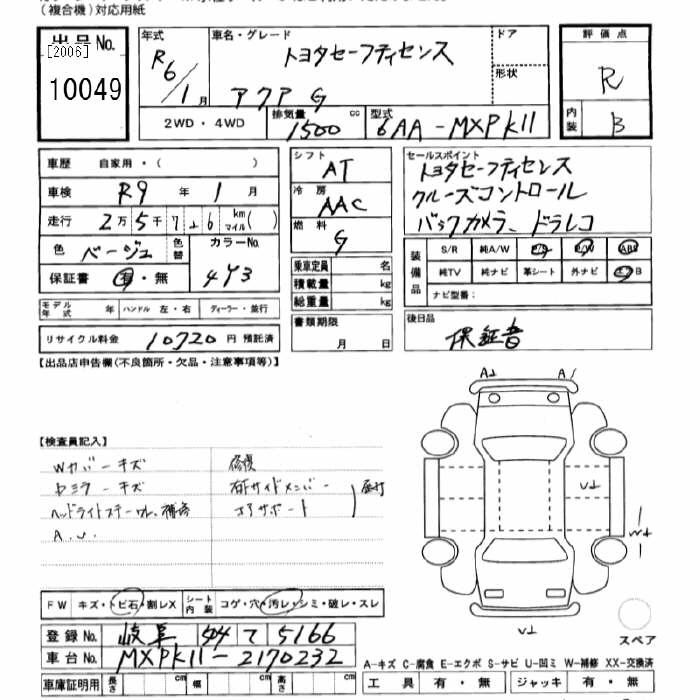 (複合機)対応用紙
出品No.
[2006]
10049
年式
R6/1月
車名・グレード
トヨタセーフティセンス
アクア G
ドア
形状
評価点
R
内装
B
2WD・4WD
排気量
1500 cc
型式
6AA-MXPK11
車歴 自家用・( )
車検 R9 年 1 月
走行 2万5千7 6 km マイル( )
色 ベージュ 色替 カラーNo. 4Y3
保証書 有・無
モデル年式 年 ハンドル 左・右 ディーラー・並行
リサイクル料金 10720 円 預託済
シフト AT
冷房 AAC
燃料 G
乗車定員 名
積載量 kg
総重量 kg
書類期限
月 日
セールスポイント
トヨタセーフティセンス
クルーズコントロール
バックカメラ、ドラレコ
装備品
S/R 純A/W P/S P/W ABS
純TV 純ナビ 革シート 外ナビ エアB
ナビ型番:
後日品
保証書
【出品店申告欄(不良箇所・欠品・注意事項等)】
【検査員記入】
Wカバーキズ
ヘッドライトスチール 補修
A.U.
修復
右Fサイドメンバー
コアサポート
A↓
A/
U↓
W↓
U↓
スペア
FW キズ・トビ石・割レX シート内装 コゲ・穴・汚レ・シミ・破レ・スレ
登録No. 岐阜 504 て 5166
車台No. MXPK11-2170232
車庫証明用 長さ cm 幅 cm 高さ cm
A-キズ C-腐食 E-エクボ S-サビ U-凹ミ W-補修 XX-交換済
工具 有・無 ジャッキ 有・無